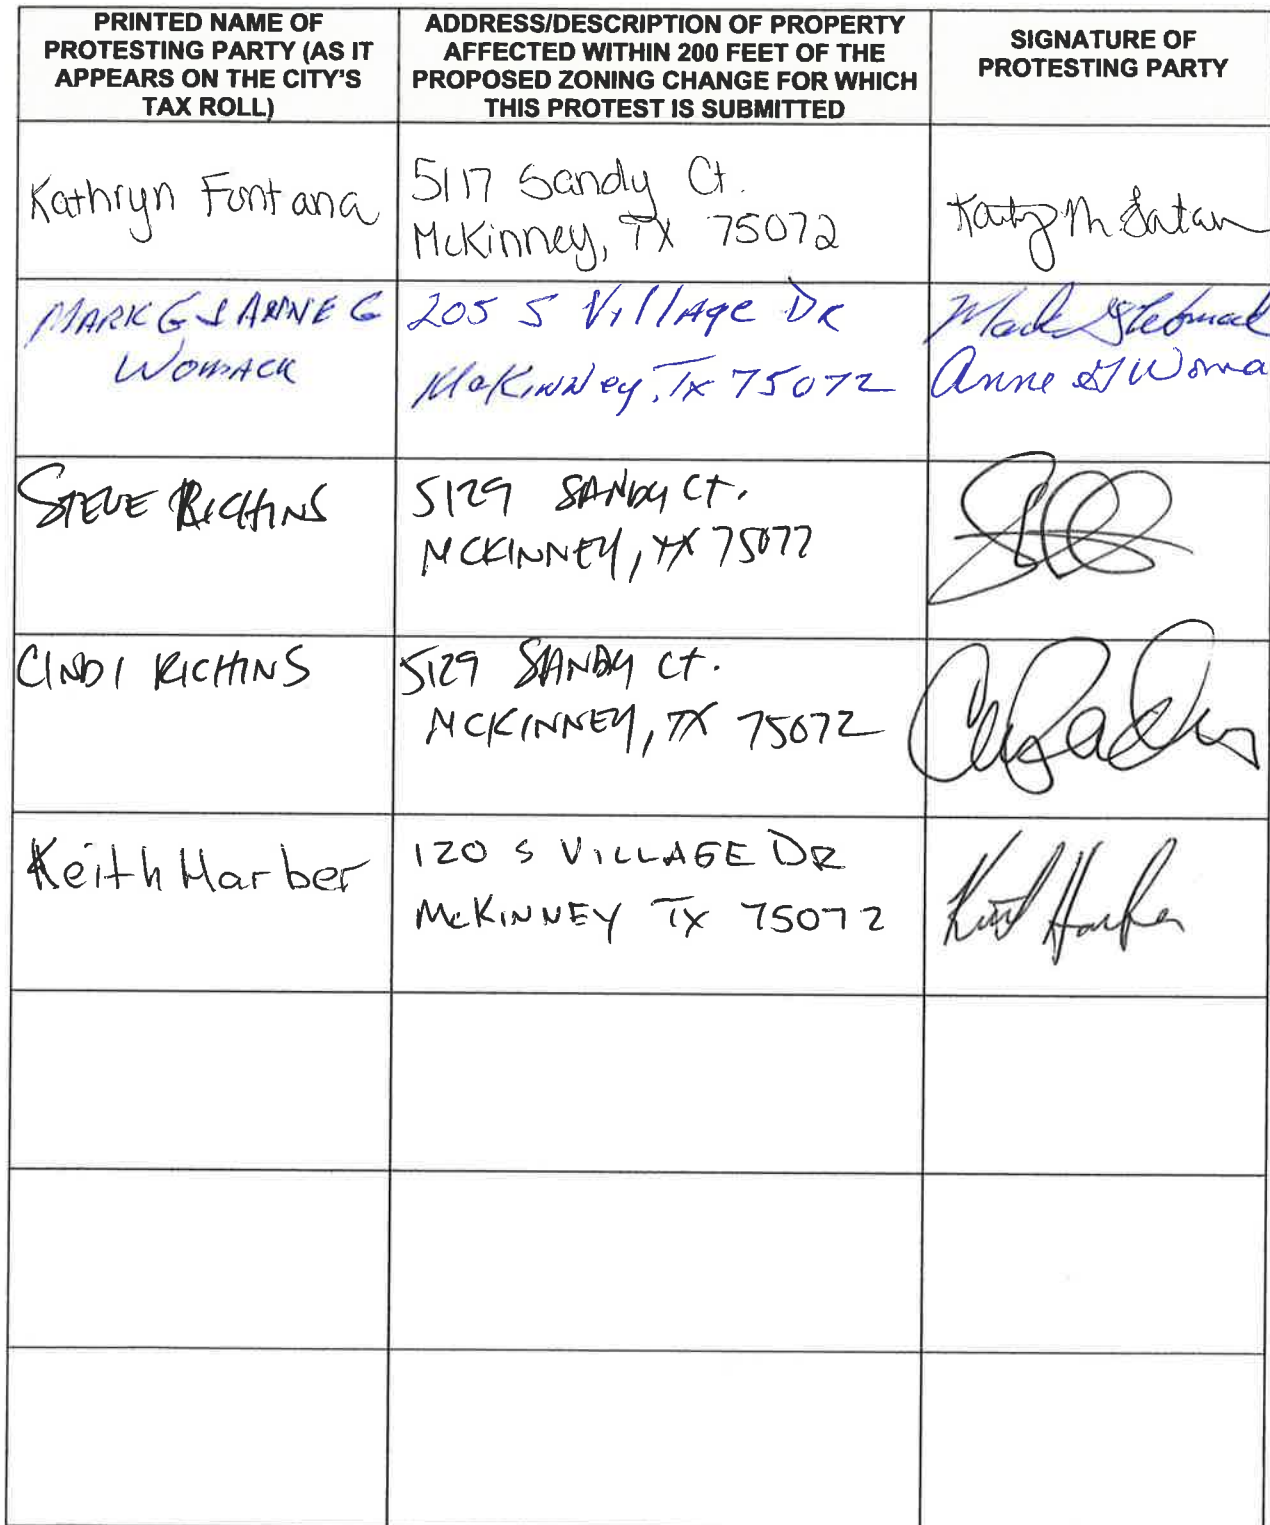 PRINTED NAME OF
PROTESTING PARTY (AS IT
APPEARS ON THE CITY'S
TAX ROLL)
ADDRESS/DESCRIPTION OF PROPERTY
AFFECTED WITHIN 200 FEET OF THE
PROPOSED ZONING CHANGE FOR WHICH
THIS PROTEST IS SUBMITTED
SIGNATURE OF
PROTESTING PARTY
Kathryn Fontana
5117 Sandy Ct.
McKinney, TX 75072
MARK G & ANNE G
WOMACK
205 S Village DR
McKINNey, Tx 75072
Anne G Woma
STEVE RICHINS
5129 SANDY CT.
MCKINNEY, TX 75072
CINDI RICHINS
5129 SANDY CT.
MCKINNEY, TX 75072
Keith Harber
120 S VILLAGE DR
McKINNEY TX 75072